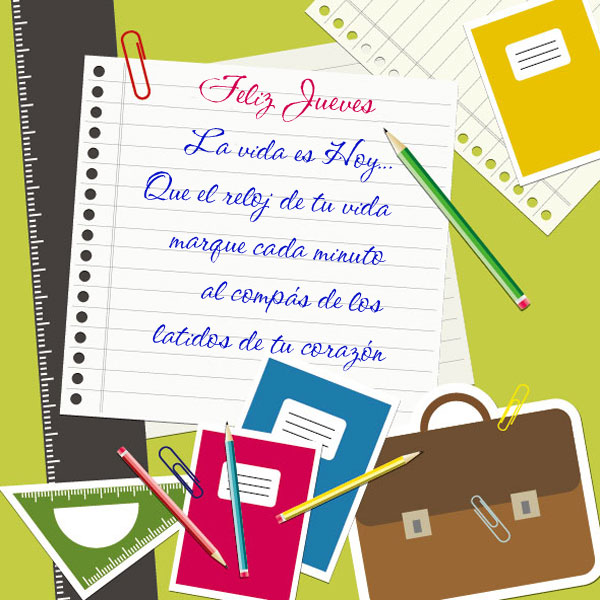 Feliz Jueves
La vida es Hoy...
Que el reloj de tu vida
marque cada minuto
al compás de los
latidos de tu corazón